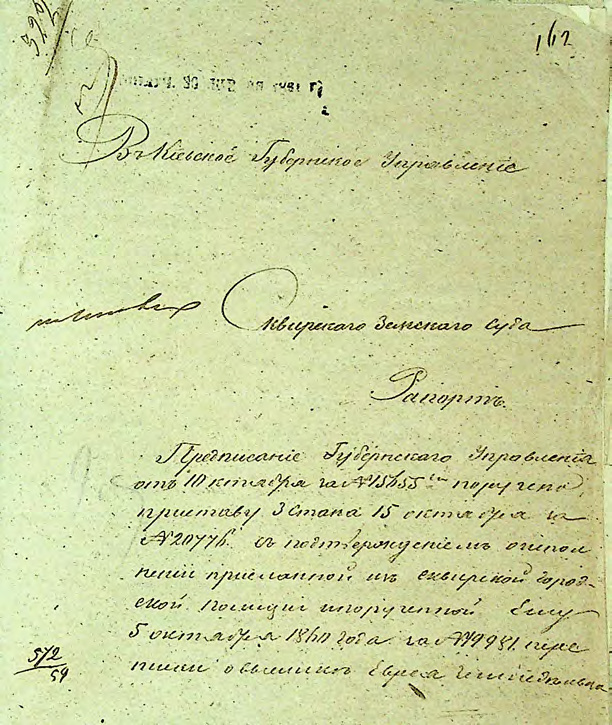 162
Въ Кіевское Губернское Управленіе
Сквирскаго Земскаго Суда
Рапортъ.
Предписаніе Губернскаго Управленія
отъ 10 октября за №15655 поручено
приставу 3 стана 15 октября за
№20776 съ подтвержденіемъ о испол
неніи присланной изъ сквирской город
ской полиціи и порученной Ему
5 октября 1860 года за №19981 пере
писки о Еврея
572
59